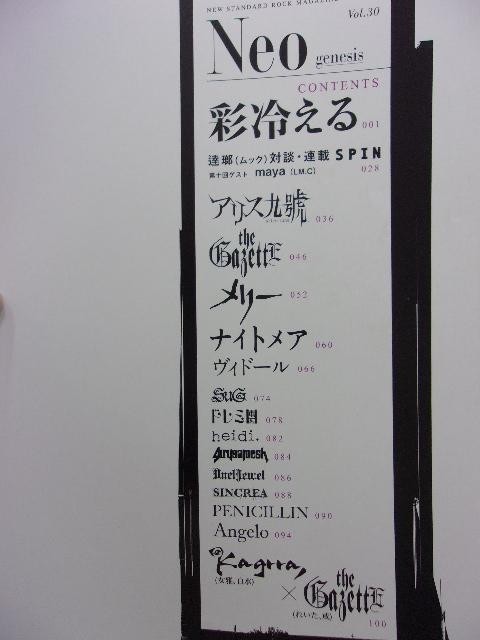 NEW STANDARD ROCK MAGAZINE
Vol.30
Neo genesis
CONTENTS
彩冷える 001
逹瑯(ムック)対談・連載 SPIN
第十回ゲスト maya (LM.C) 028
アリス九號. 036
the GazettE 046
メリー 052
ナイトメア 060
ヴィドール 066
SuG 074
ドレミ團 078
heidi. 082
girugamesh 084
DuelJewel 086
SINCREA 088
PENICILLIN 090
Angelo 094
Kagrra,
(女雅、白水)
× the GazettE
(れいた、戒)
100